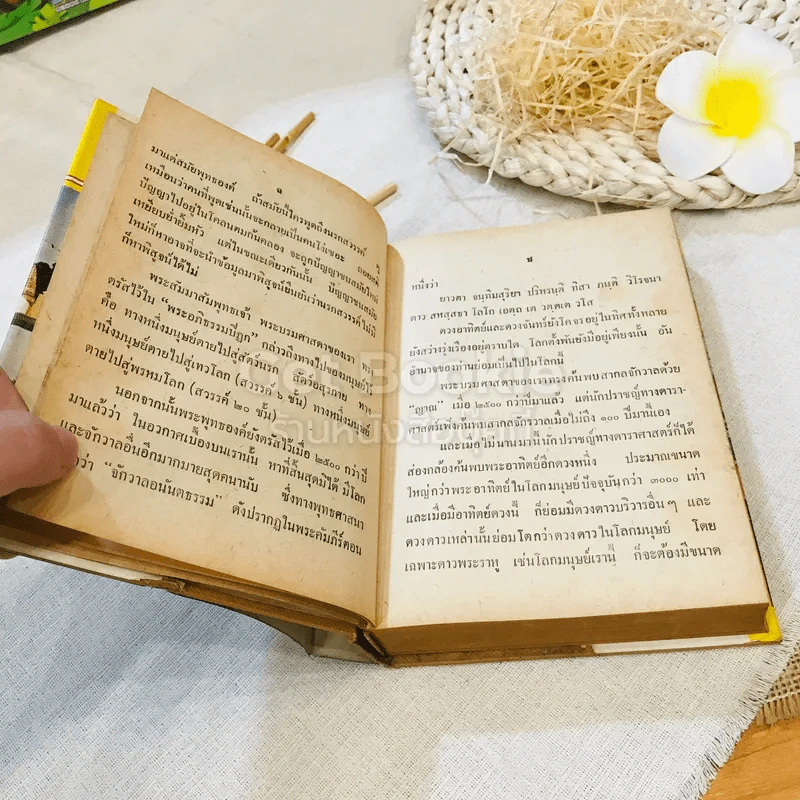 ฉ
มาแต่สมัยพุทธองค์ ถ้าสมัยนี้ใครพูดถึงนรกสวรรค์ ก็
เหมือนว่าคนที่พูดเช่นนั้นจะกลายเป็นคนโง่เซอะ ถอยหลัง
ปัญญาไปอยู่ในโคลนตมก้นคลอง จะถูกปัญญาชนสมัยใหม่
เหยียบย่ำยิ้มหัว แต่ในขณะเดียวกันนั้น ปัญญาชนสมัย
ใหม่ก็หาอาจที่จะนำข้อมูลมาพิสูจน์ยืนยันว่านรกสวรรค์ไม่มี
ก็หาพิสูจน์ได้ไม่
พระสัมมาสัมพุทธเจ้า พระบรมศาสดาของเรา ทรง
ตรัสไว้ใน “พระอภิธรรมปิฎก” กล่าวถึงทางไปของมนุษย์ไว้
คือ ทางหนึ่งมนุษย์ตายไปสู่สัตว์นรก สัตว์อสุรกาย ทาง
หนึ่งมนุษย์ตายไปสู่เทวโลก (สวรรค์ ๖ ชั้น) ทางหนึ่งมนุษย์
ตายไปสู่พรหมโลก (สวรรค์ ๒๐ ชั้น)
นอกจากนั้นพระพุทธองค์ยังตรัสไว้เมื่อ ๒๕๐๐ กว่าปี
มาแล้วว่า ในอวกาศเบื้องบนเรานั้น หาที่สิ้นสุดมิได้ มีโลก
และจักรวาลอื่นอีกมากมายสุดคณานับ ซึ่งทางพุทธศาสนา
ว่า “จักรวาลอนันตธรรม” ดังปรากฏในพระคัมภีร์ตอน
ช
หนึ่งว่า
ยาวตา จนฺทิมสุริยา ปริหรนฺติ ทิสา ภนฺติ วิโรจนา
ตาว สหสฺสธา โลโก เอตฺถ เต วตฺตเต วโส
ดวงอาทิตย์และดวงจันทร์ยังโคจรอยู่ในทิศทั้งหลาย
ยังสว่างรุ่งเรืองอยู่ตราบใด โลกตั้งพันยังมีอยู่เพียงนั้น อัน
อำนาจของท่านย่อมเป็นไปในโลกนี้
พระบรมศาสดาของเราทรงค้นพบสากลจักรวาลด้วย
“ญาณ” เมื่อ ๒๕๐๐ กว่าปีมาแล้ว แต่นักปราชญ์ทางดารา-
ศาสตร์เพิ่งค้นพบสากลจักรวาลเมื่อไม่ถึง ๑๐๐ ปีมานี้เอง
และเมื่อไม่นานมานี้นักปราชญ์ทางดาราศาสตร์ก็ได้
ส่องกล้องค้นพบพระอาทิตย์อีกดวงหนึ่ง ประมาณขนาด
ใหญ่กว่าพระอาทิตย์ในโลกมนุษย์ปัจจุบันกว่า ๓๐๐๐ เท่า
และเมื่อมีอาทิตย์ดวงนี้ ก็ย่อมมีดวงดาวบริวารอื่น ๆ และ
ดวงดาวเหล่านั้นย่อมโตกว่าดวงดาวในโลกมนุษย์ โดย
เฉพาะดาวพระราหู เช่นโลกมนุษย์เรานี้ ก็จะต้องมีขนาด
Get Bookie
ร้านหนังสือบุ๊คกี้